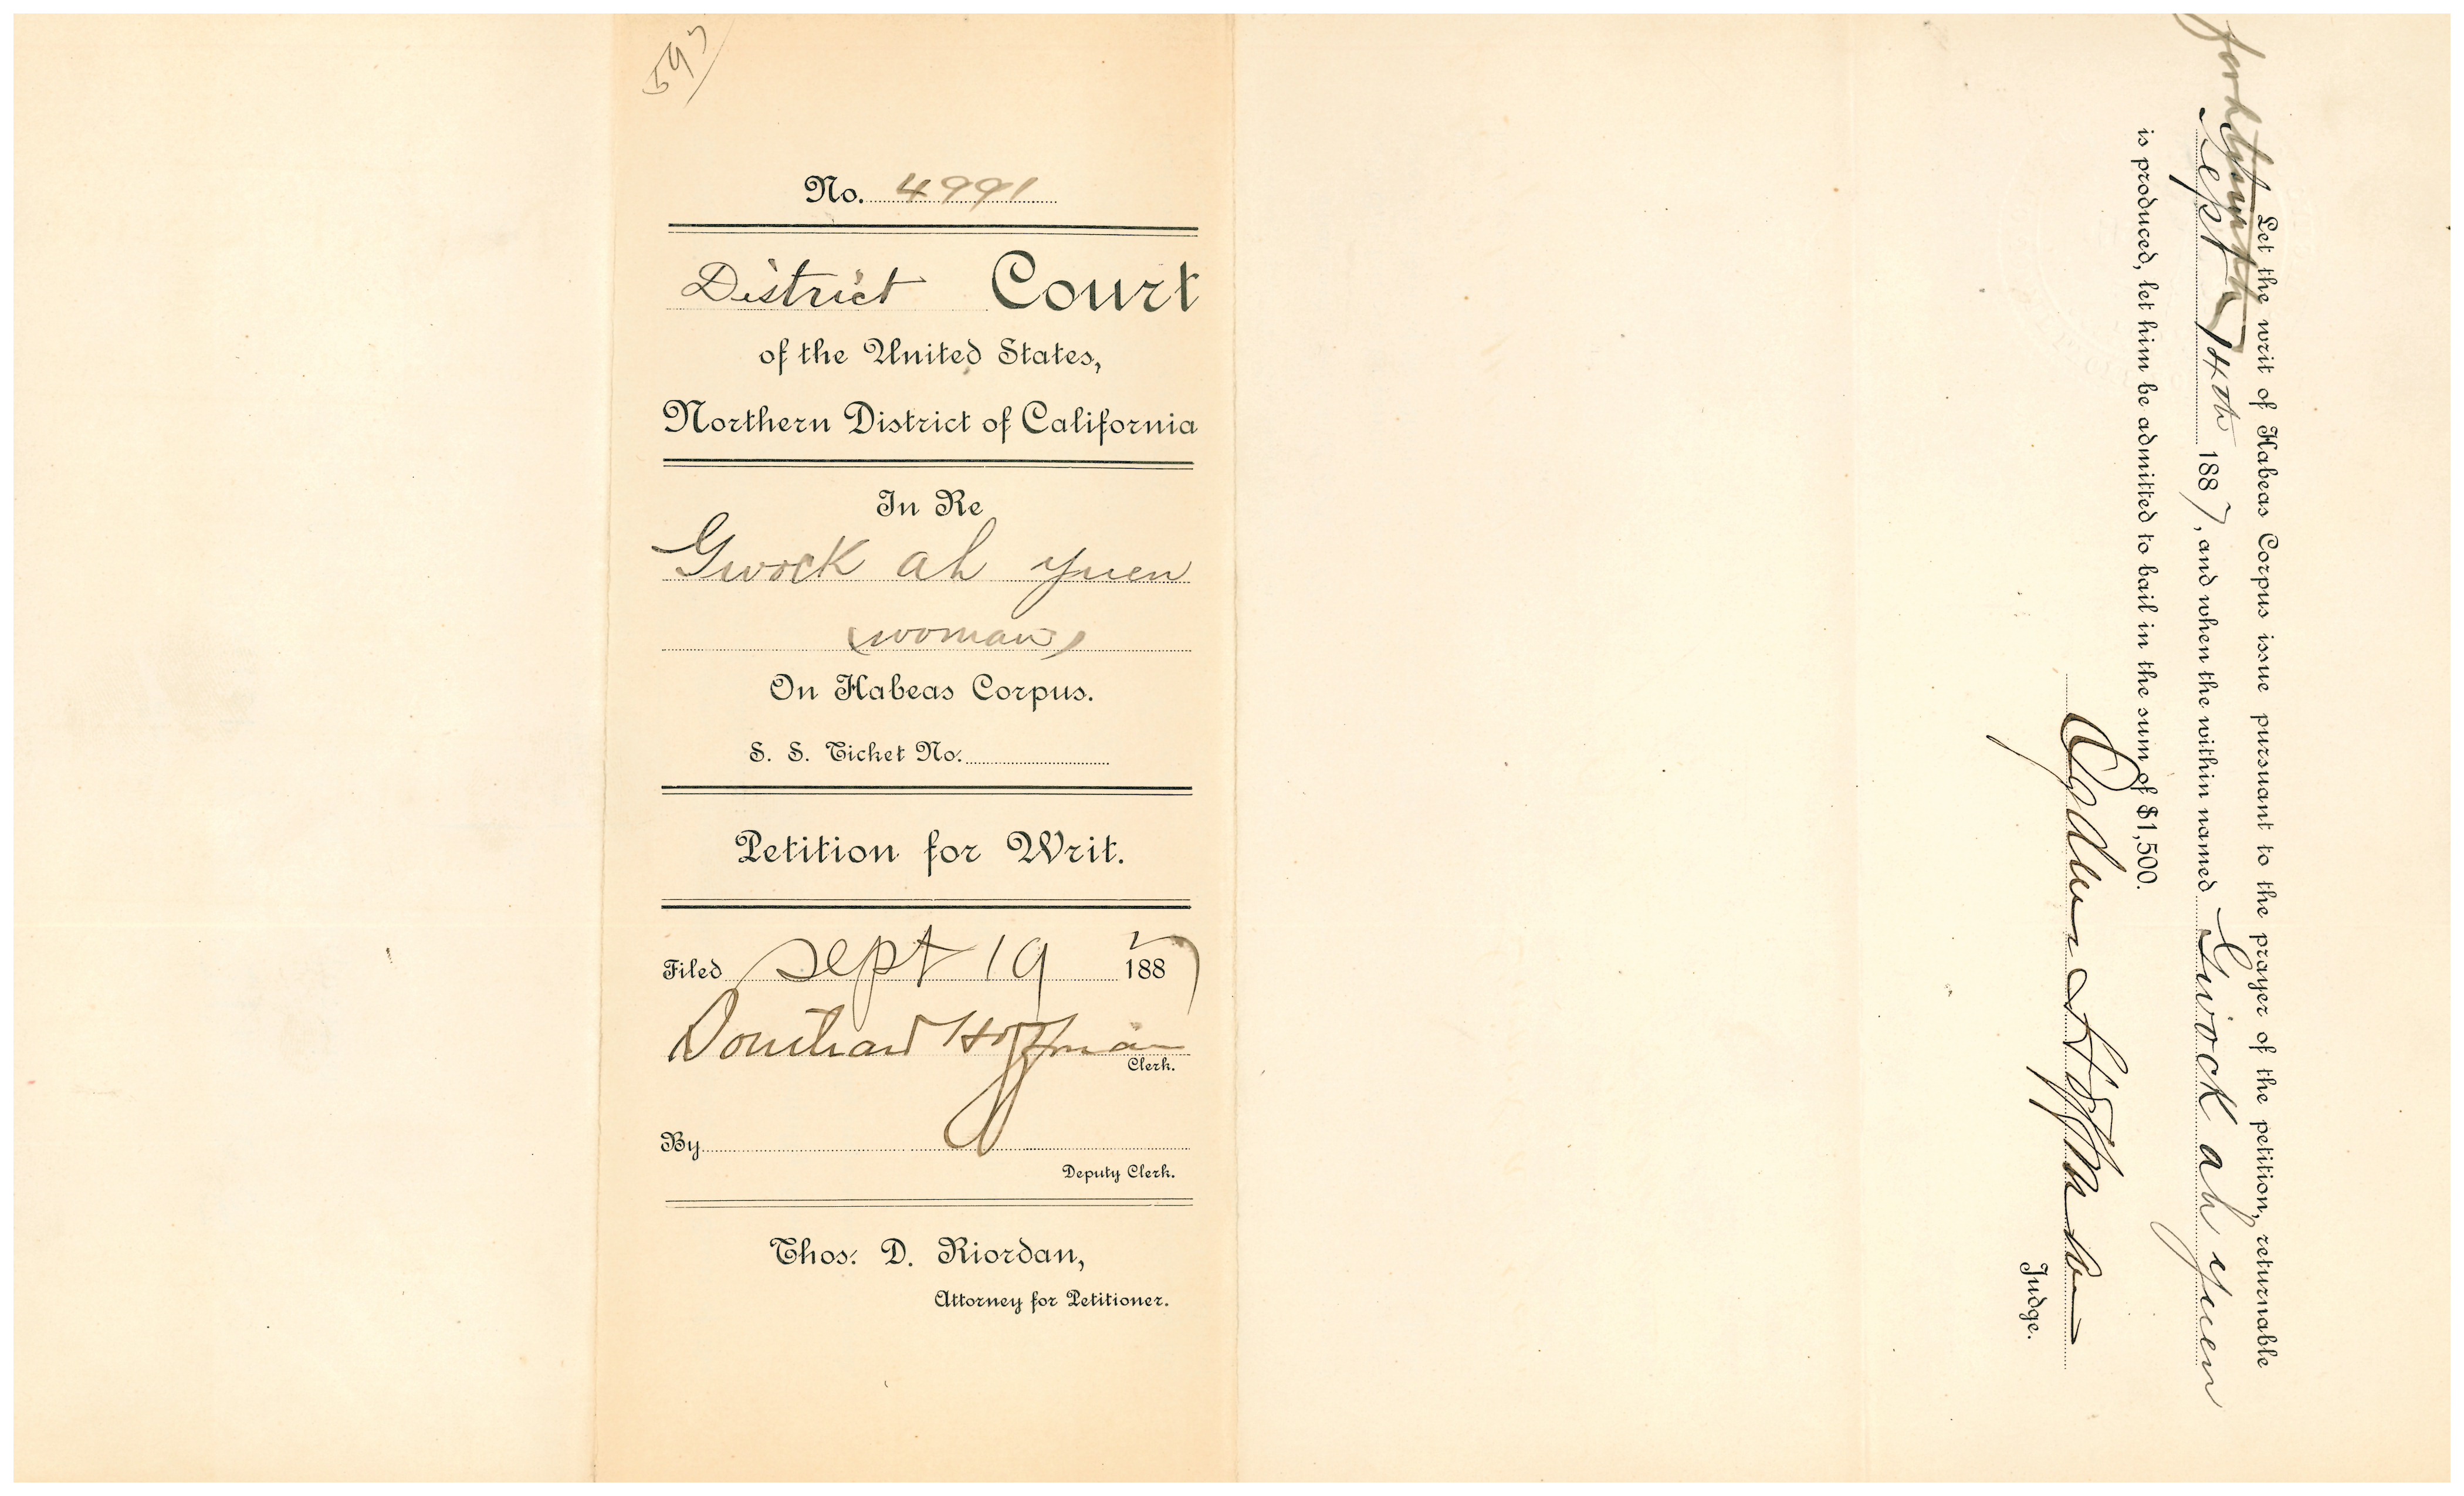 597
No. 4991
District Court
of the United States,
Northern District of California
In Re
Gwock ah yuen
(woman)
On Habeas Corpus.
S. S. Ticket No.
Petition for Writ.
Filed Sept 19 1887
Hoffman
Clerk.
By
Deputy Clerk.
Thos. D. Riordan,
Attorney for Petitioner.
Let the writ of Habeas Corpus issue pursuant to the prayer of the petition, returnable
forthwith
Sept 14th 1887, and when the within named Gwock ah yuen
is produced, let him be admitted to bail in the sum of $1,500.
Ogden Hoffman
Judge.